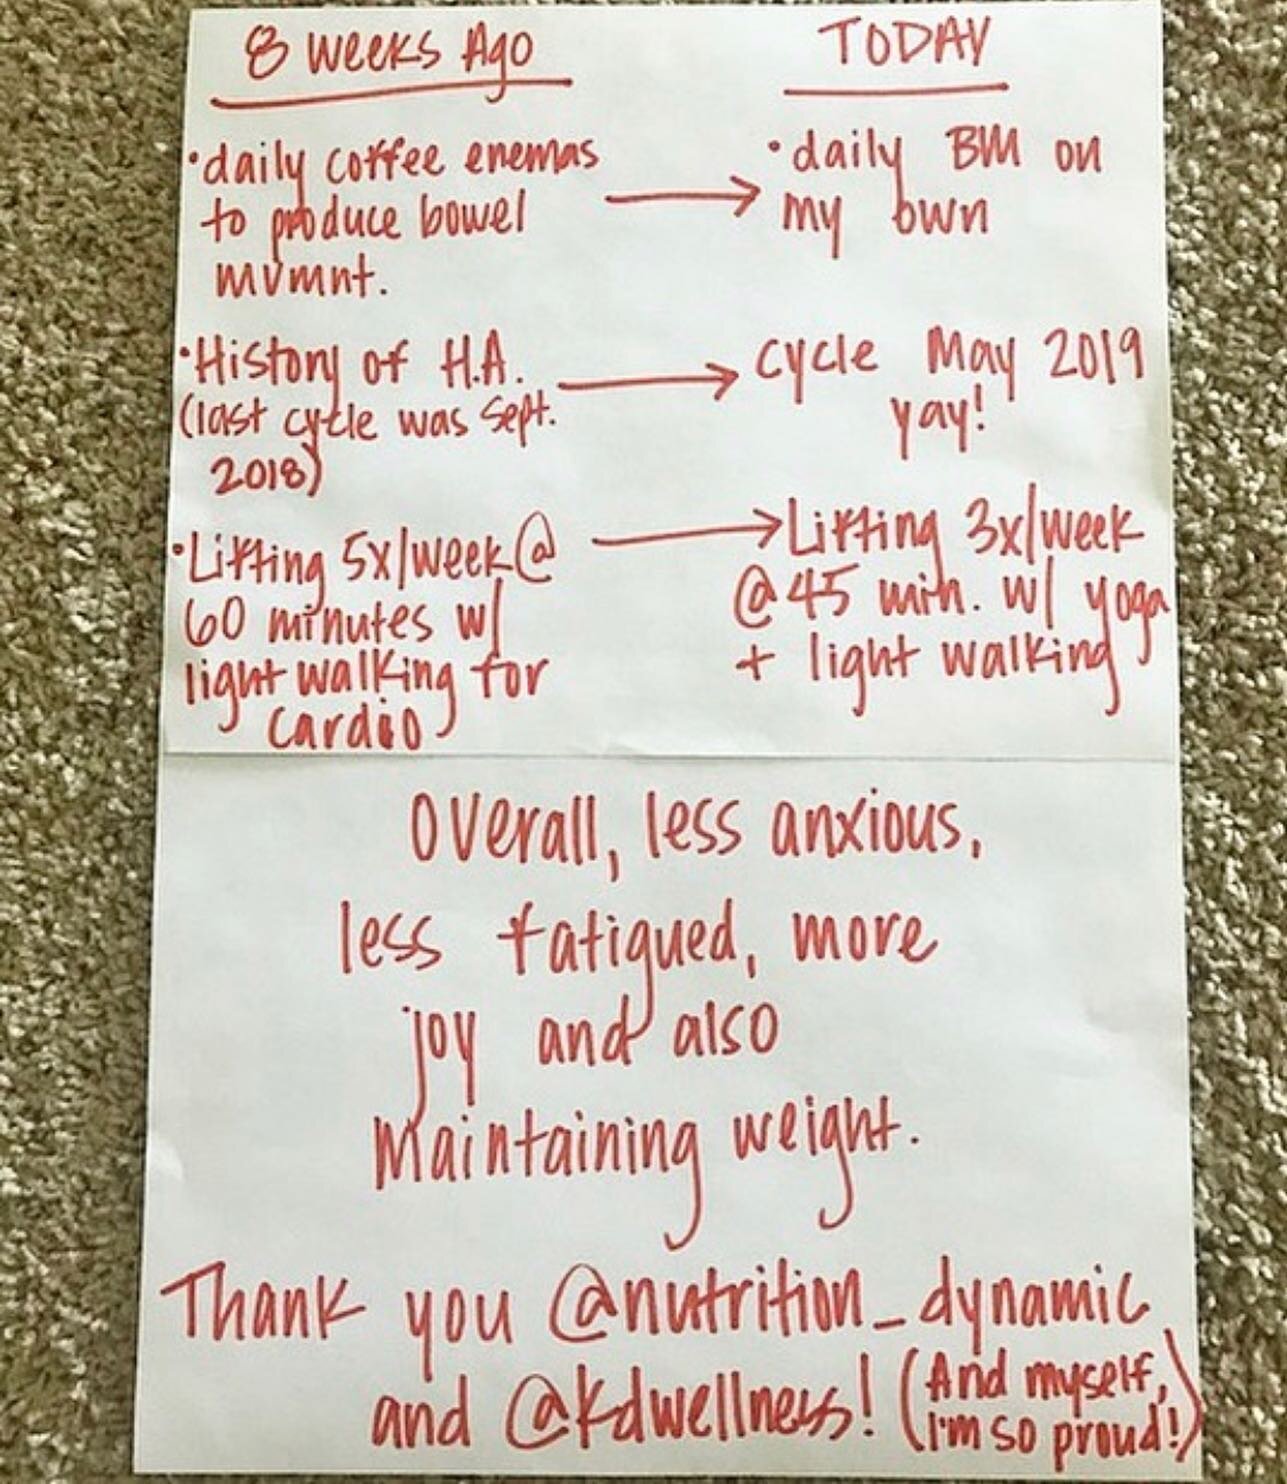 8 weeks Ago
TODAY
• daily coffee enemas
to produce bowel
mvmnt.
• daily BM on
my own
• History of H.A.
(last cycle was sept.
2018)
cycle May 2019
yay!
• Lifting 5x/week @
60 minutes w/
light walking for
cardio
Lifting 3x/week
@ 45 min. w/ yoga
+ light walking
Overall, less anxious,
less fatigued, more
joy and also
maintaining weight.
Thank you @nutrition_dynamic
and @kdwellness! (And myself,
I'm so proud!)